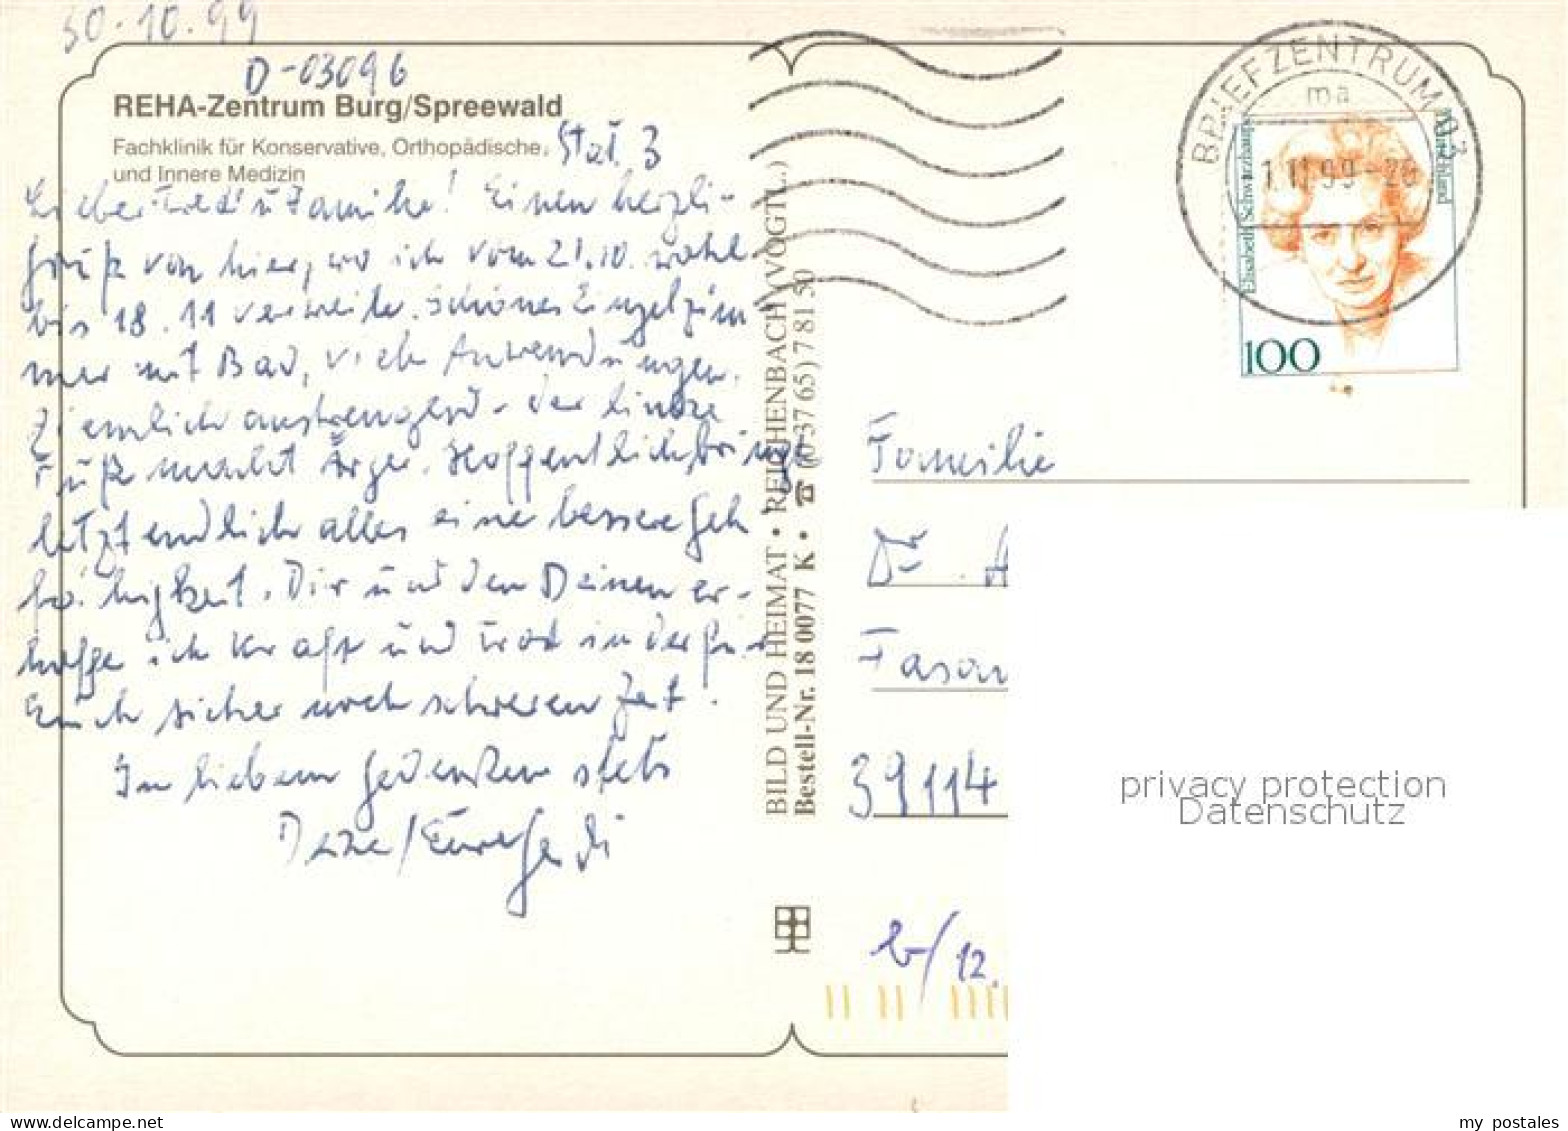 30.10.99
D-03096
REHA-Zentrum Burg/Spreewald
Fachklinik für Konservative, Orthopädische
und Innere Medizin
Stat. 3
Lieber u Familie! Einen herzli-
gruß von hier, wo ich vom 21.10. wohl
bis 18.11 verweile. Schönes Einzelzim
mer mit Bad, viele Anwendungen.
Ziemlich anstrengend - der linke
Fuß macht Ärger. Hoffentlich bringt
letztendlich alles eine bessere Geh
fähigkeit. Dir und den Deinen er-
hoffe ich Kraft und Trost in der für
Euch sicher noch schweren Zeit.
In liebem Gedenken stets
Deine/Eure
BILD UND HEIMAT • REICHENBACH (VOGTL.)
Bestell-Nr. 18 0077 K • ☎ (0 37 65) 7 81 50
BRIEFZENTRUM 03
ma
1.11.99-20
Elisabeth Schwarzhaupt
Deutschland
100
Familie
Dr. A
Fasan
39114
b-/12.
privacy protection
Datenschutz
my postales